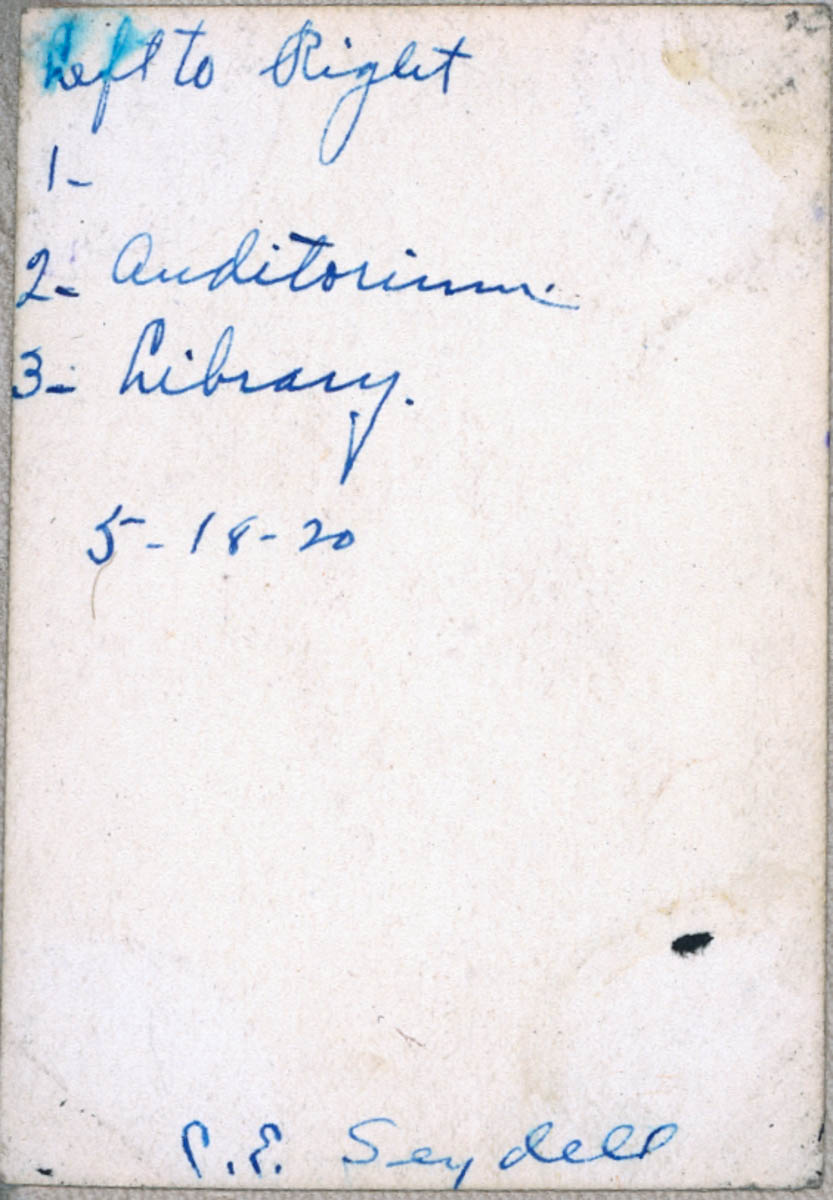 Left to Right
1-
2- Auditorium.
3- Library.
5-18-20
C.E. Seydell